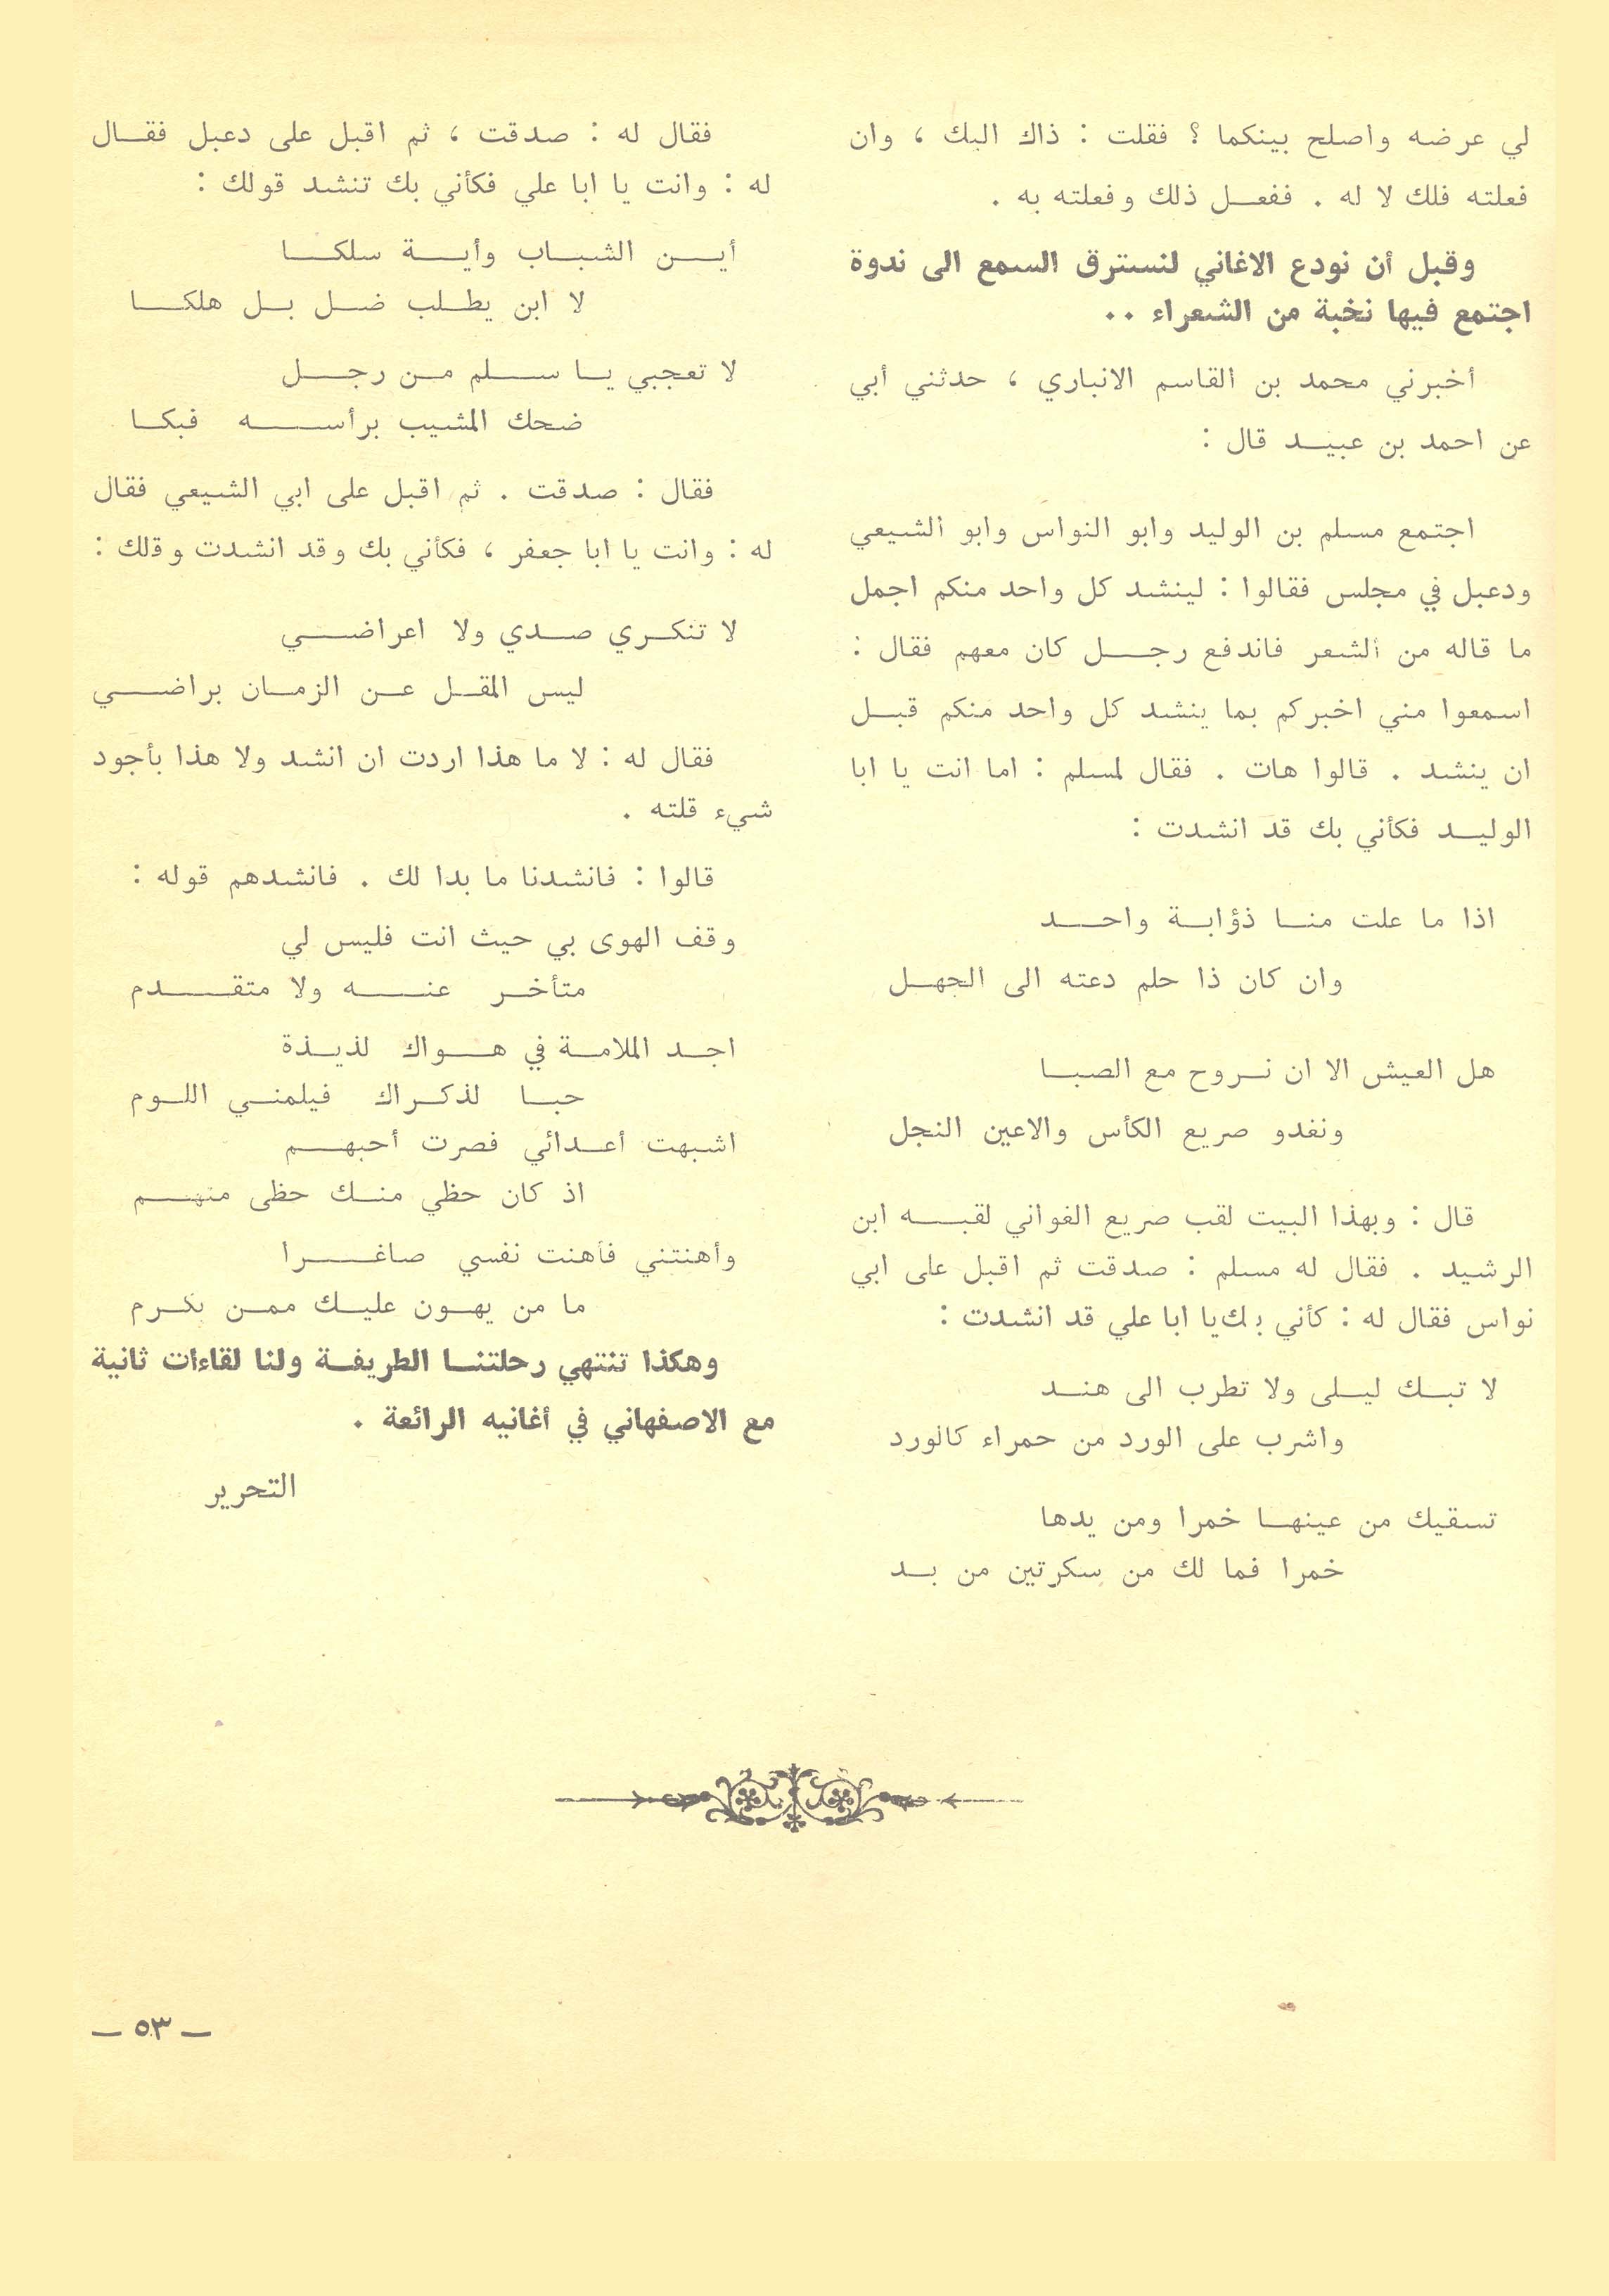 لي عرضه واصلح بينكما ؟ فقلت : ذاك اليك ، وان
فعلته فلك لا له . ففعل ذلك وفعلته به .
وقبل أن نودع الاغاني لنسترق السمع الى ندوة
اجتمع فيها نخبة من الشعراء ..
أخبرني محمد بن القاسم الانباري ، حدثني أبي
عن احمد بن عبيد قال :
اجتمع مسلم بن الوليد وابو النواس وابو الشيعي
ودعبل في مجلس فقالوا : لينشد كل واحد منكم اجمل
ما قاله من الشعر فاندفع رجل كان معهم فقال :
اسمعوا مني اخبركم بما ينشد كل واحد منكم قبل
ان ينشد . قالوا هات . فقال لمسلم : اما انت يا ابا
الوليد فكأني بك قد انشدت :
اذا ما علت منا ذؤابة واحد
وان كان ذا حلم دعته الى الجهل
هل العيش الا ان نروح مع الصبا
ونغدو صريع الكأس والاعين النجل
قال : وبهذا البيت لقب صريع الغواني لقبه ابن
الرشيد . فقال له مسلم : صدقت ثم اقبل على ابي
نواس فقال له : كأني بك يا ابا علي قد انشدت :
لا تبك ليلى ولا تطرب الى هند
واشرب على الورد من حمراء كالورد
تسقيك من عينها خمرا ومن يدها
خمرا فما لك من سكرتين من بد
فقال له : صدقت ، ثم اقبل على دعبل فقال
له : وانت يا ابا علي فكأني بك تنشد قولك :
أين الشباب وأية سلكا
لا ابن يطلب ضل بل هلكا
لا تعجبي يا سلم من رجل
ضحك المشيب برأسه فبكا
فقال : صدقت . ثم اقبل على ابي الشيعي فقال
له : وانت يا ابا جعفر ، فكأني بك وقد انشدت وقلك :
لا تنكري صدي ولا اعراضي
ليس المقل عن الزمان براضي
فقال له : لا ما هذا اردت ان انشد ولا هذا بأجود
شيء قلته .
قالوا : فانشدنا ما بدا لك . فانشدهم قوله :
وقف الهوى بي حيث انت فليس لي
متأخر عنه ولا متقدم
اجد الملامة في هواك لذيذة
حبا لذكراك فيلمني اللوم
اشبهت أعدائي فصرت أحبهم
اذ كان حظي منك حظى منهم
وأهنتني فأهنت نفسي صاغرا
ما من يهون عليك ممن يكرم
وهكذا تنتهي رحلتنا الطريفة ولنا لقاءات ثانية
مع الاصفهاني في أغانيه الرائعة .
التحرير
— ٥٣ —